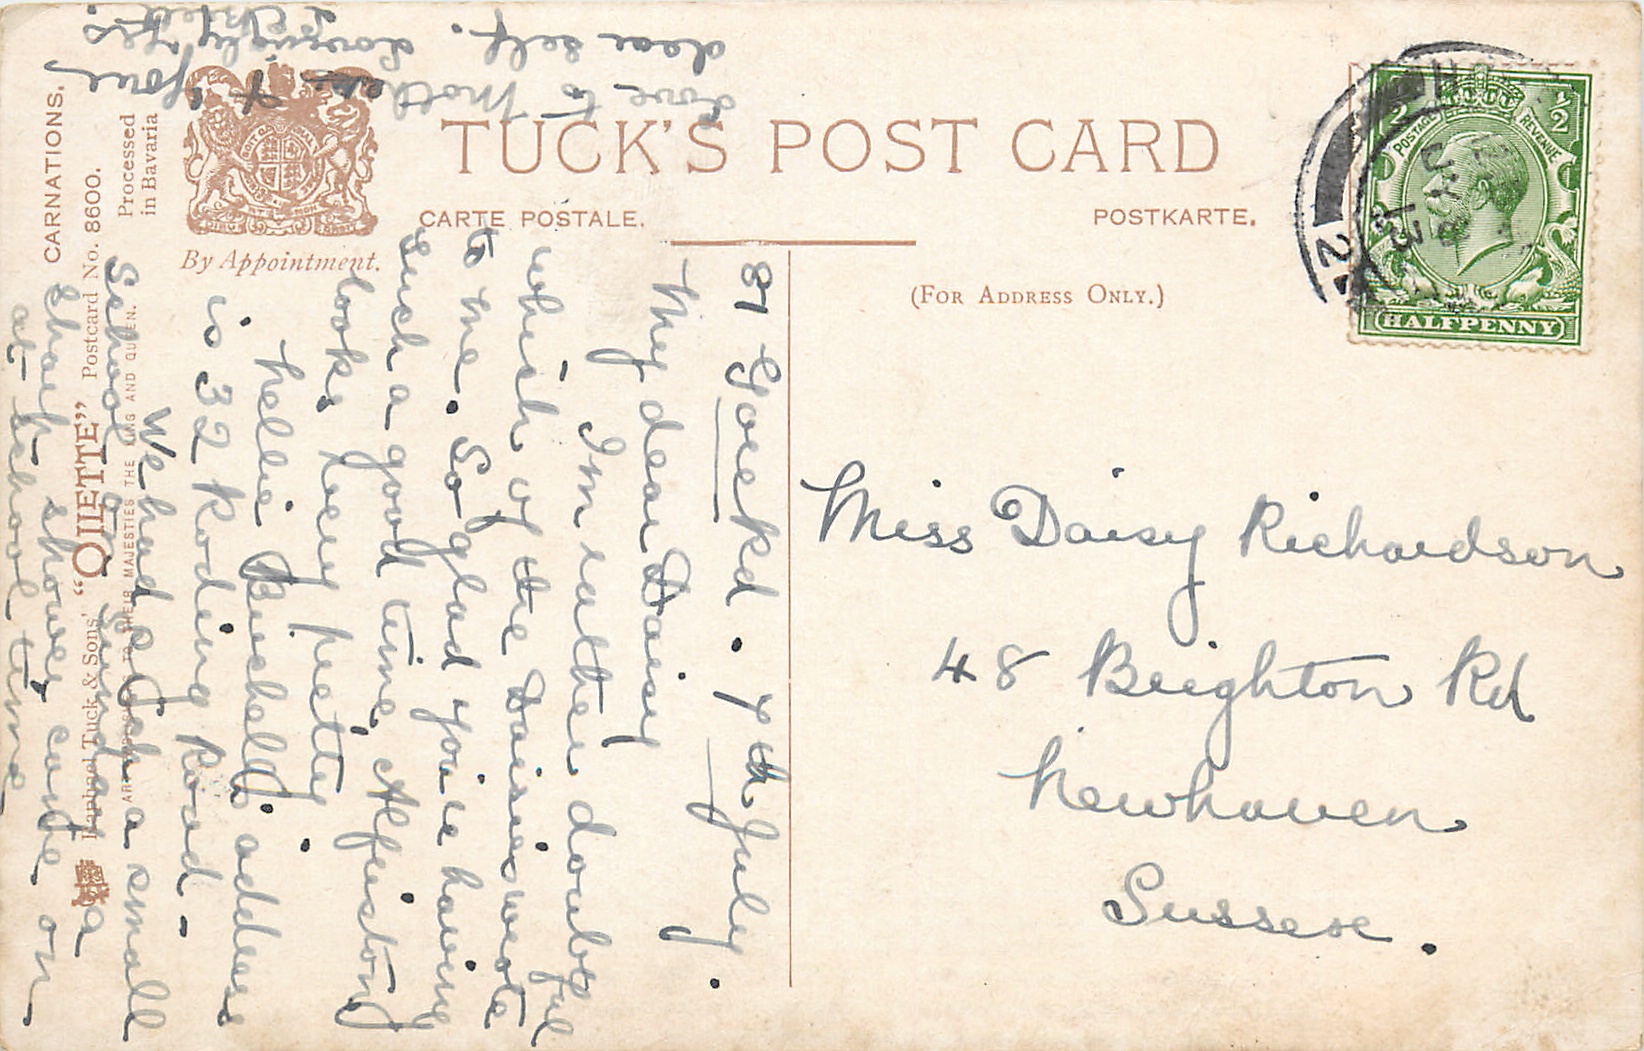 TUCK'S POST CARD
CARTE POSTALE.
POSTKARTE.
(FOR ADDRESS ONLY.)
By Appointment.
Processed
in Bavaria
CARNATIONS.
Raphael Tuck & Sons' "OILETTE" Postcard No. 8600.
ART PUBLISHERS TO THEIR MAJESTIES THE KING AND QUEEN.
POSTAGE
REVENUE
1/2
1/2
HALFPENNY
13
2
Miss Daisy Richardson
48 Brighton Rd
Newhaven
Sussex.
87 Rd. 7th July.
My dear Daisy
I'm rather doubtful
which of the Daisies wrote
to me. So glad you're having
such a good time, Alfriston
looks very pretty.
Nellie Burchell's address
is 32 Roding Road.
We had a small
School Sunday &
sharp shower came on
at school time
love to Mother &
dear self.